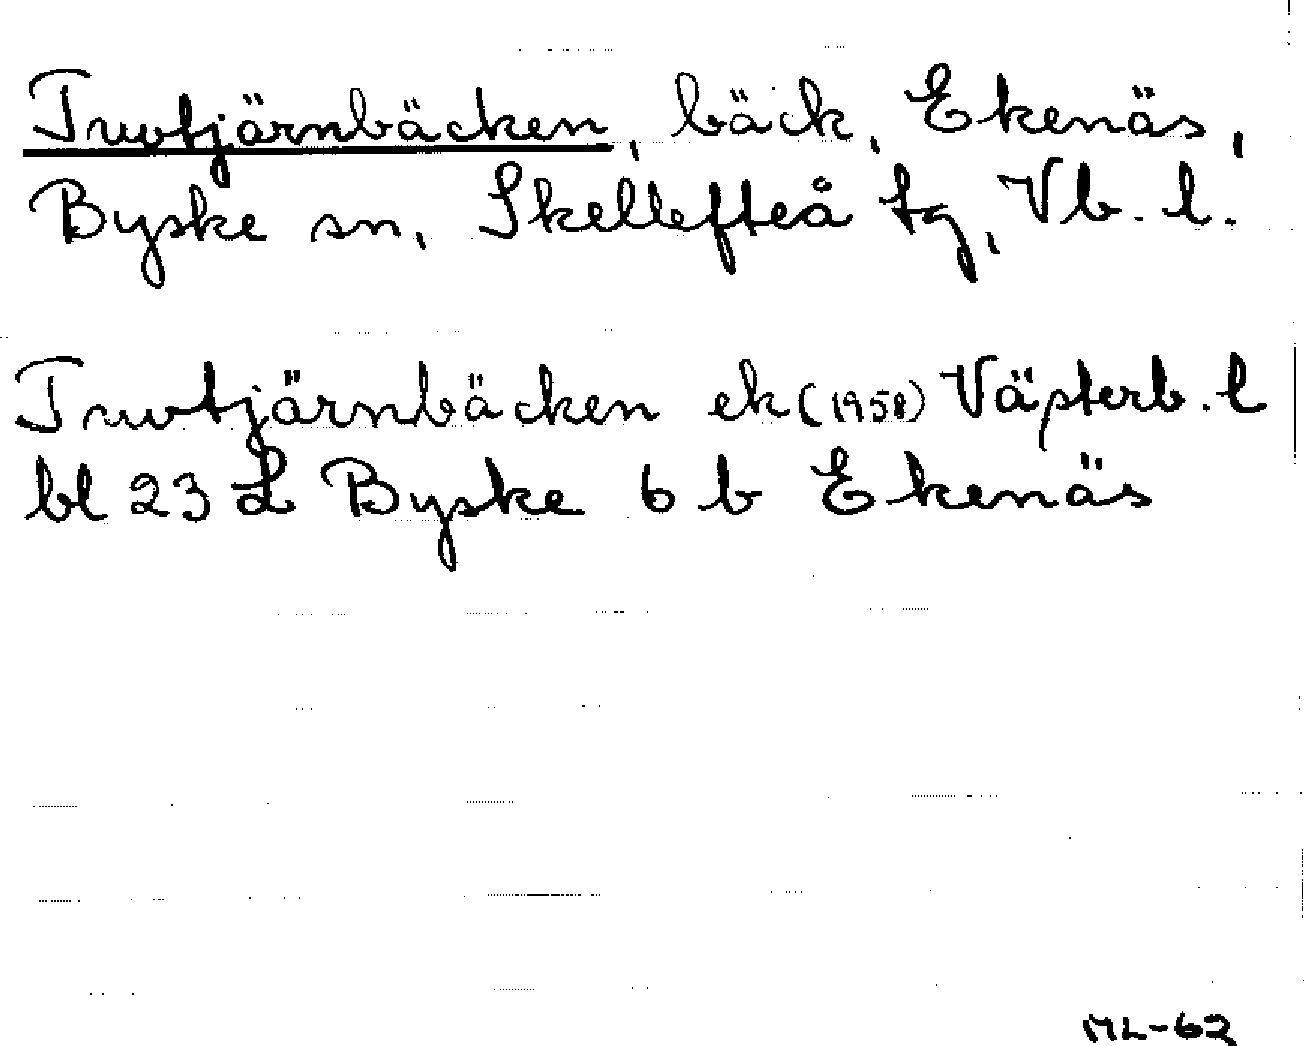 Trutjärnbäcken, bäck, Ekenäs,
Byske sn, Skellefteå tg, Vb. l.
Trutjärnbäcken ek (1958) Västerb. l
bl 23 L Byske 6 b Ekenäs
ML-62